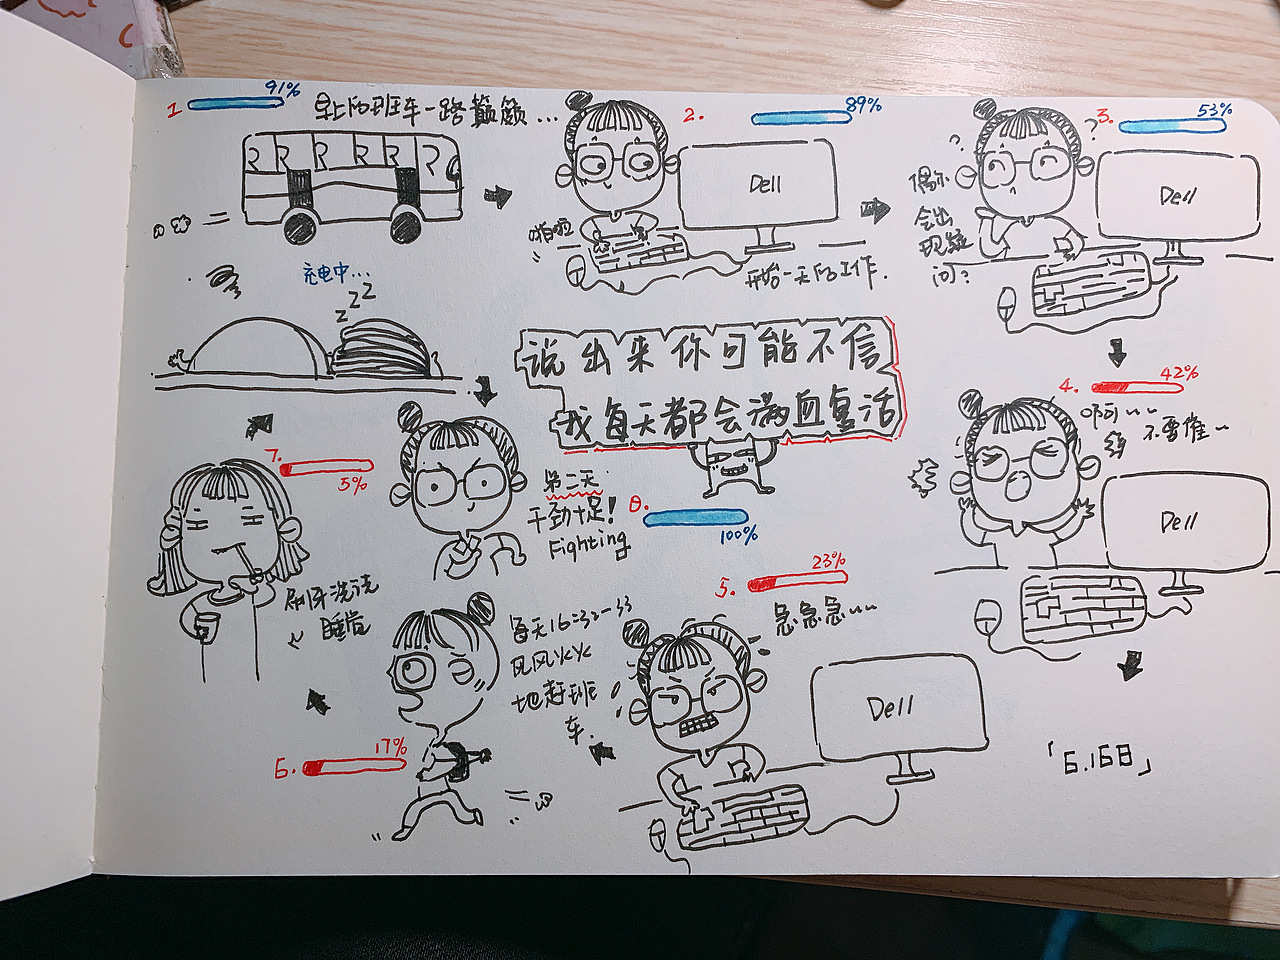 1
91%
早上的班车一路颠簸...
2.
89%
Dell
啪啦
开始一天的工作.
3.
53%
? ?
偶尔
会出
现疑
问?
Dell
4.
42%
啊~~
不要催~
Dell
5.
23%
急急急~~
Dell
6.
17%
每天16:32-33
风风火火
地赶班
车.
7.
5%
刷牙洗洗
睡觉
充电中...
zZZ
8.
100%
第二天
干劲十足!
Fighting
说出来你可能不信
我每天都会满血复活
「6.16日」